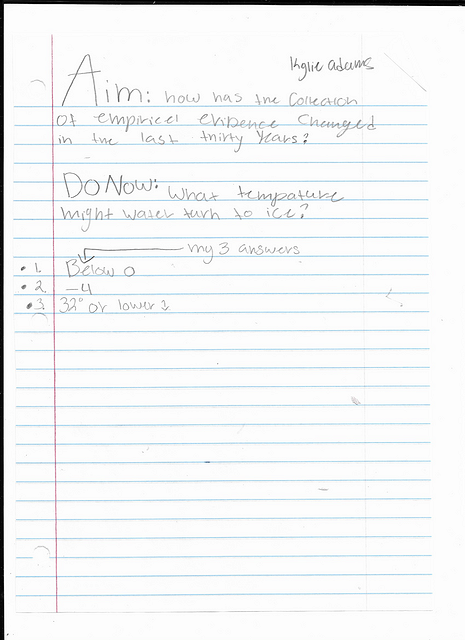 Kylie adams
Aim: how has the Collection
of empirical evidence changed
in the last thirty years?
Do Now: What tempature
might water turn to ice?
my 3 answers
1. Below 0
2. -4
3. 32° or lower